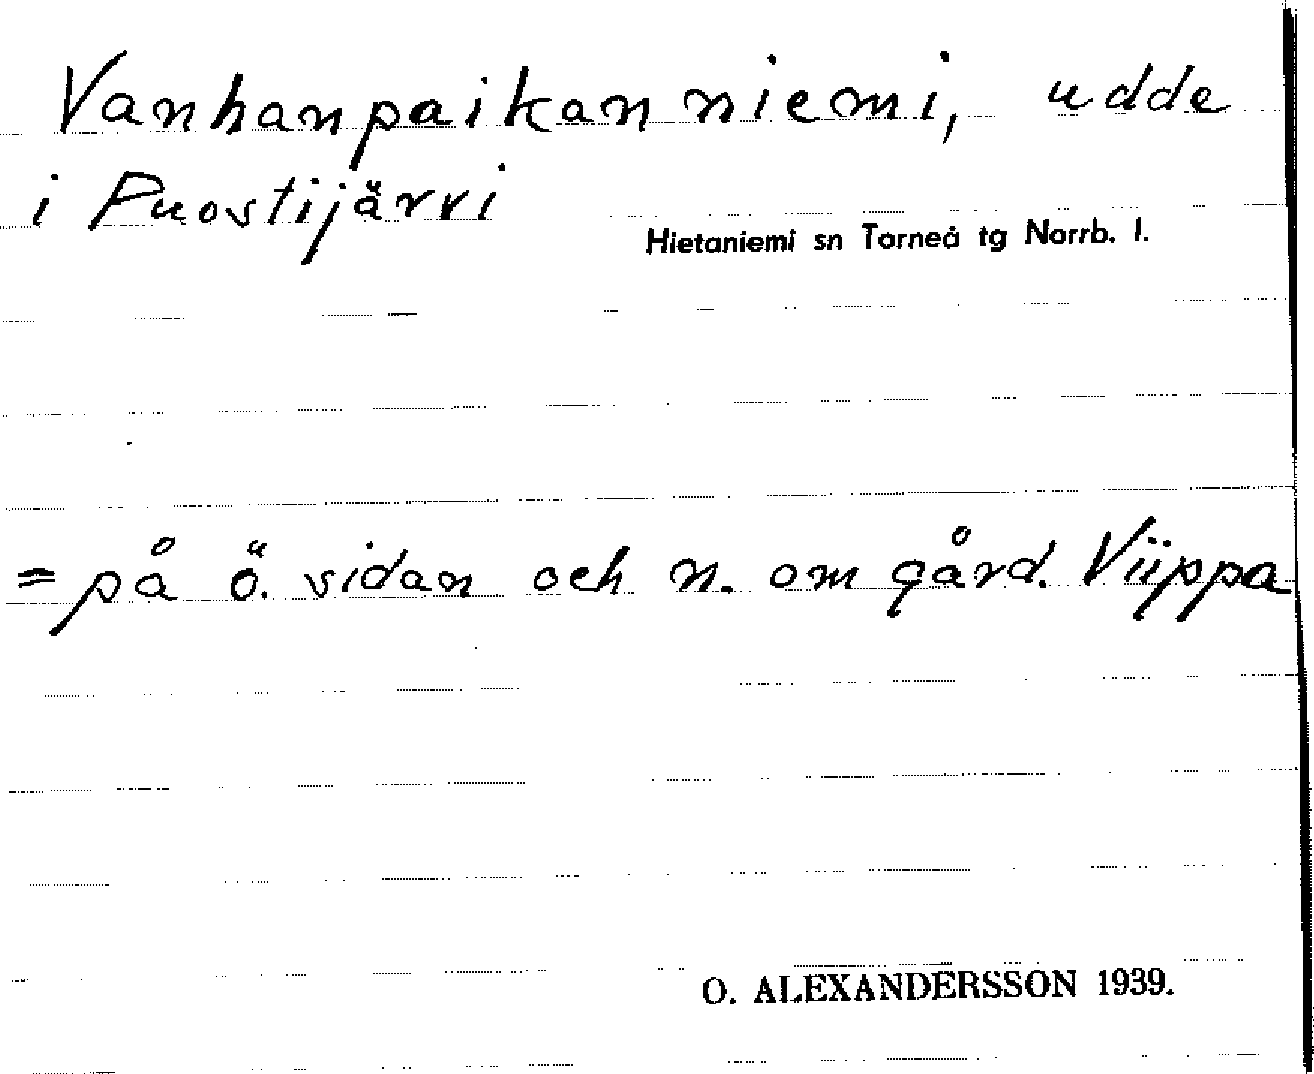 Vanhanpaikanniemi, udde
i Puostijärvi
Hietaniemi sn Torneå tg Norrb. l.
= på ö. sidan och n. om gård. Viippa
O. ALEXANDERSSON 1939.